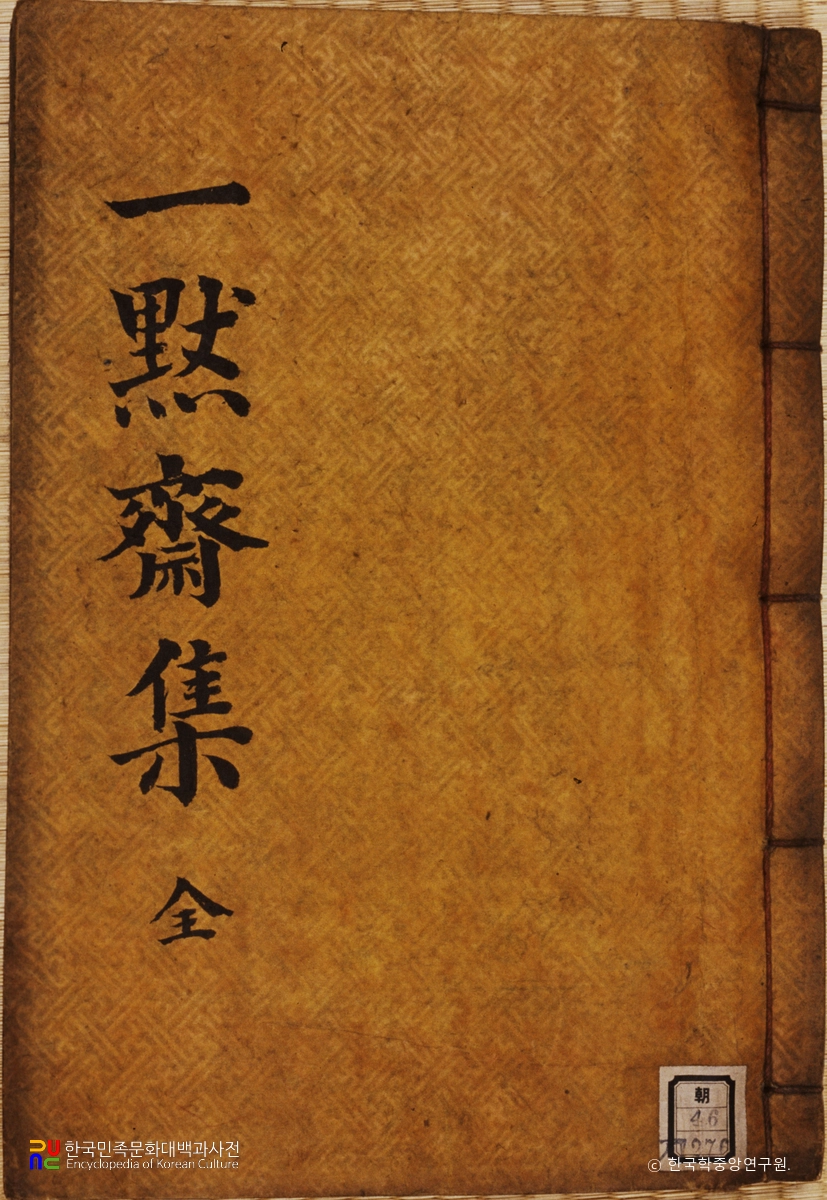 一默齋集
全
朝
46
한국민족문화대백과사전
Encyclopedia of Korean Culture
© 한국학중앙연구원.